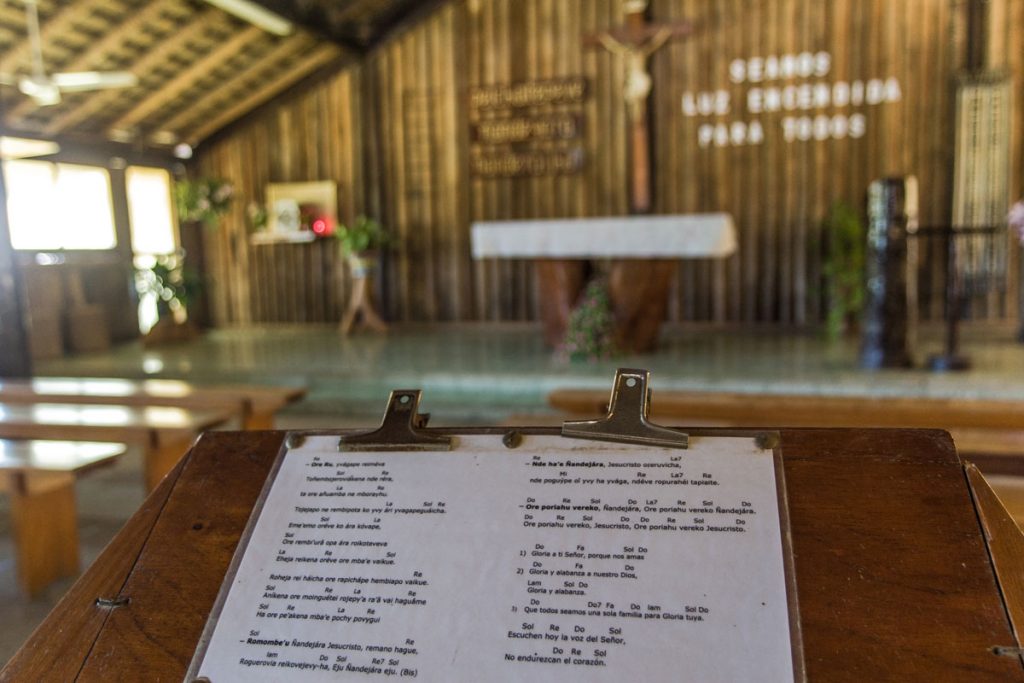 SEAMOS
LUZ ENCENDIDA
PARA TODOS
Re La
- Ore Ru, yvágape reiméva
Sol Re
Toñembojeroviákena nde réra,
La Re
ta ore añuamba ne mborayhu.
La Re Sol Re
Tojejapo ne rembipota ko yvy ári yvagapeguáicha.
Sol La
Eme'emo oréve ko ára kóvape,
Sol
Ore rembi'urã opa ára roikoteveva
La Re Sol
Eheja reikena oréve ore mba'e vaikue.
Re
Roheja rei háicha ore rapichápe hembiapo vaikue.
Sol Re La Re
Anikena ore moinguétei rojepy'a ra'ã vai haguãme
Sol Re La Re
Ha ore pe'akena mba'e pochy povygui
Sol Re
- Romombe'u Ñandejára Jesucristo, remano hague,
lam Do Sol Re7 Sol
Roguerovia reikovejevy-ha, Eju Ñandejára eju. (Bis)
Re La7
- Nde ha'e Ñandejára, Jesucristo oseruvicha,
Mi Re La7 Re
nde poguýpe oĩ yvy ha yvága, ndéve ropurahéi tapiaite.
Do Re Sol Do La7 Re Sol
- Ore poriahu vereko, Ñandejára, Ore poriahu vereko Ñandejára.
Do Re Sol Do Re Sol Do
Ore poriahu vereko, Jesucristo, Ore poriahu vereko Jesucristo.
Do Fa Sol Do
1) Gloria a ti Señor, porque nos amas
Do Fa Do
2) Gloria y alabanza a nuestro Dios,
Lam Sol Do
Gloria y alabanza.
Do Do7 Fa Do lam Sol Do
3) Que todos seamos una sola familia para Gloria tuya.
Sol Re Sol
Escuchen hoy la voz del Señor,
Do Re Sol
No endurezcan el corazón.